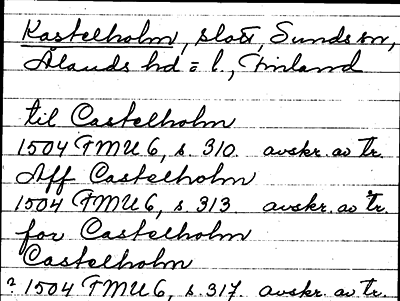 Kastelholm, slott, Sunds sn,
Ålands hd = l., Finland
til Castelholm
1504 FMU 6, s. 310. avskr. av tr.
Aff Castelholm
1504 FMU 6, s 313. avskr. av tr.
for Castelholm
Castelholm
? 1504 FMU 6, s. 317. avskr. av tr.